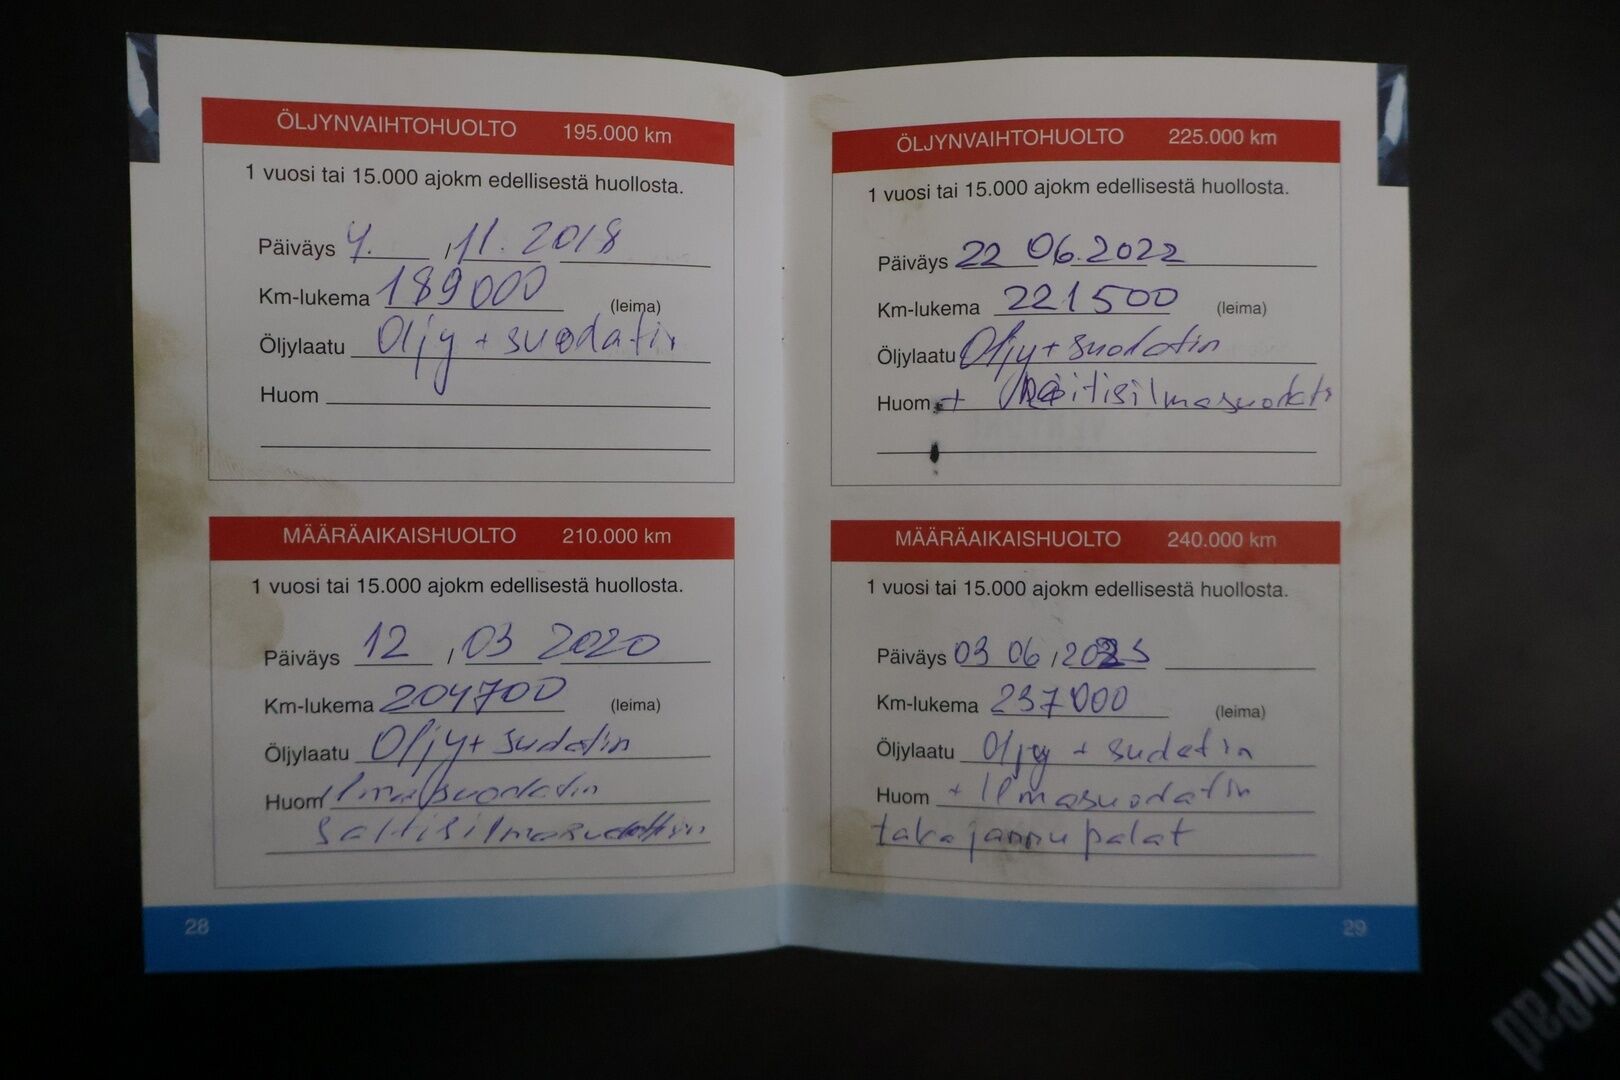 ÖLJYNVAIHTOHUOLTO 195.000 km
1 vuosi tai 15.000 ajokm edellisestä huollosta.
Päiväys 4. , 11. 2018
Km-lukema 189000 (leima)
Öljylaatu Öljy + suodatin
Huom
MÄÄRÄAIKAISHUOLTO 210.000 km
1 vuosi tai 15.000 ajokm edellisestä huollosta.
Päiväys 12 , 03 2020
Km-lukema 204700 (leima)
Öljylaatu Öljy + sudatin
Huom Ilmasuodatin
28
ÖLJYNVAIHTOHUOLTO 225.000 km
1 vuosi tai 15.000 ajokm edellisestä huollosta.
Päiväys 22 06.2022
Km-lukema 221500 (leima)
Öljylaatu Öljy + suodatin
Huom +
MÄÄRÄAIKAISHUOLTO 240.000 km
1 vuosi tai 15.000 ajokm edellisestä huollosta.
Päiväys 03 06 , 2023
Km-lukema 237000 (leima)
Öljylaatu Öljy + sudatin
Huom + Ilmasuodatin
takajarrupalat
29